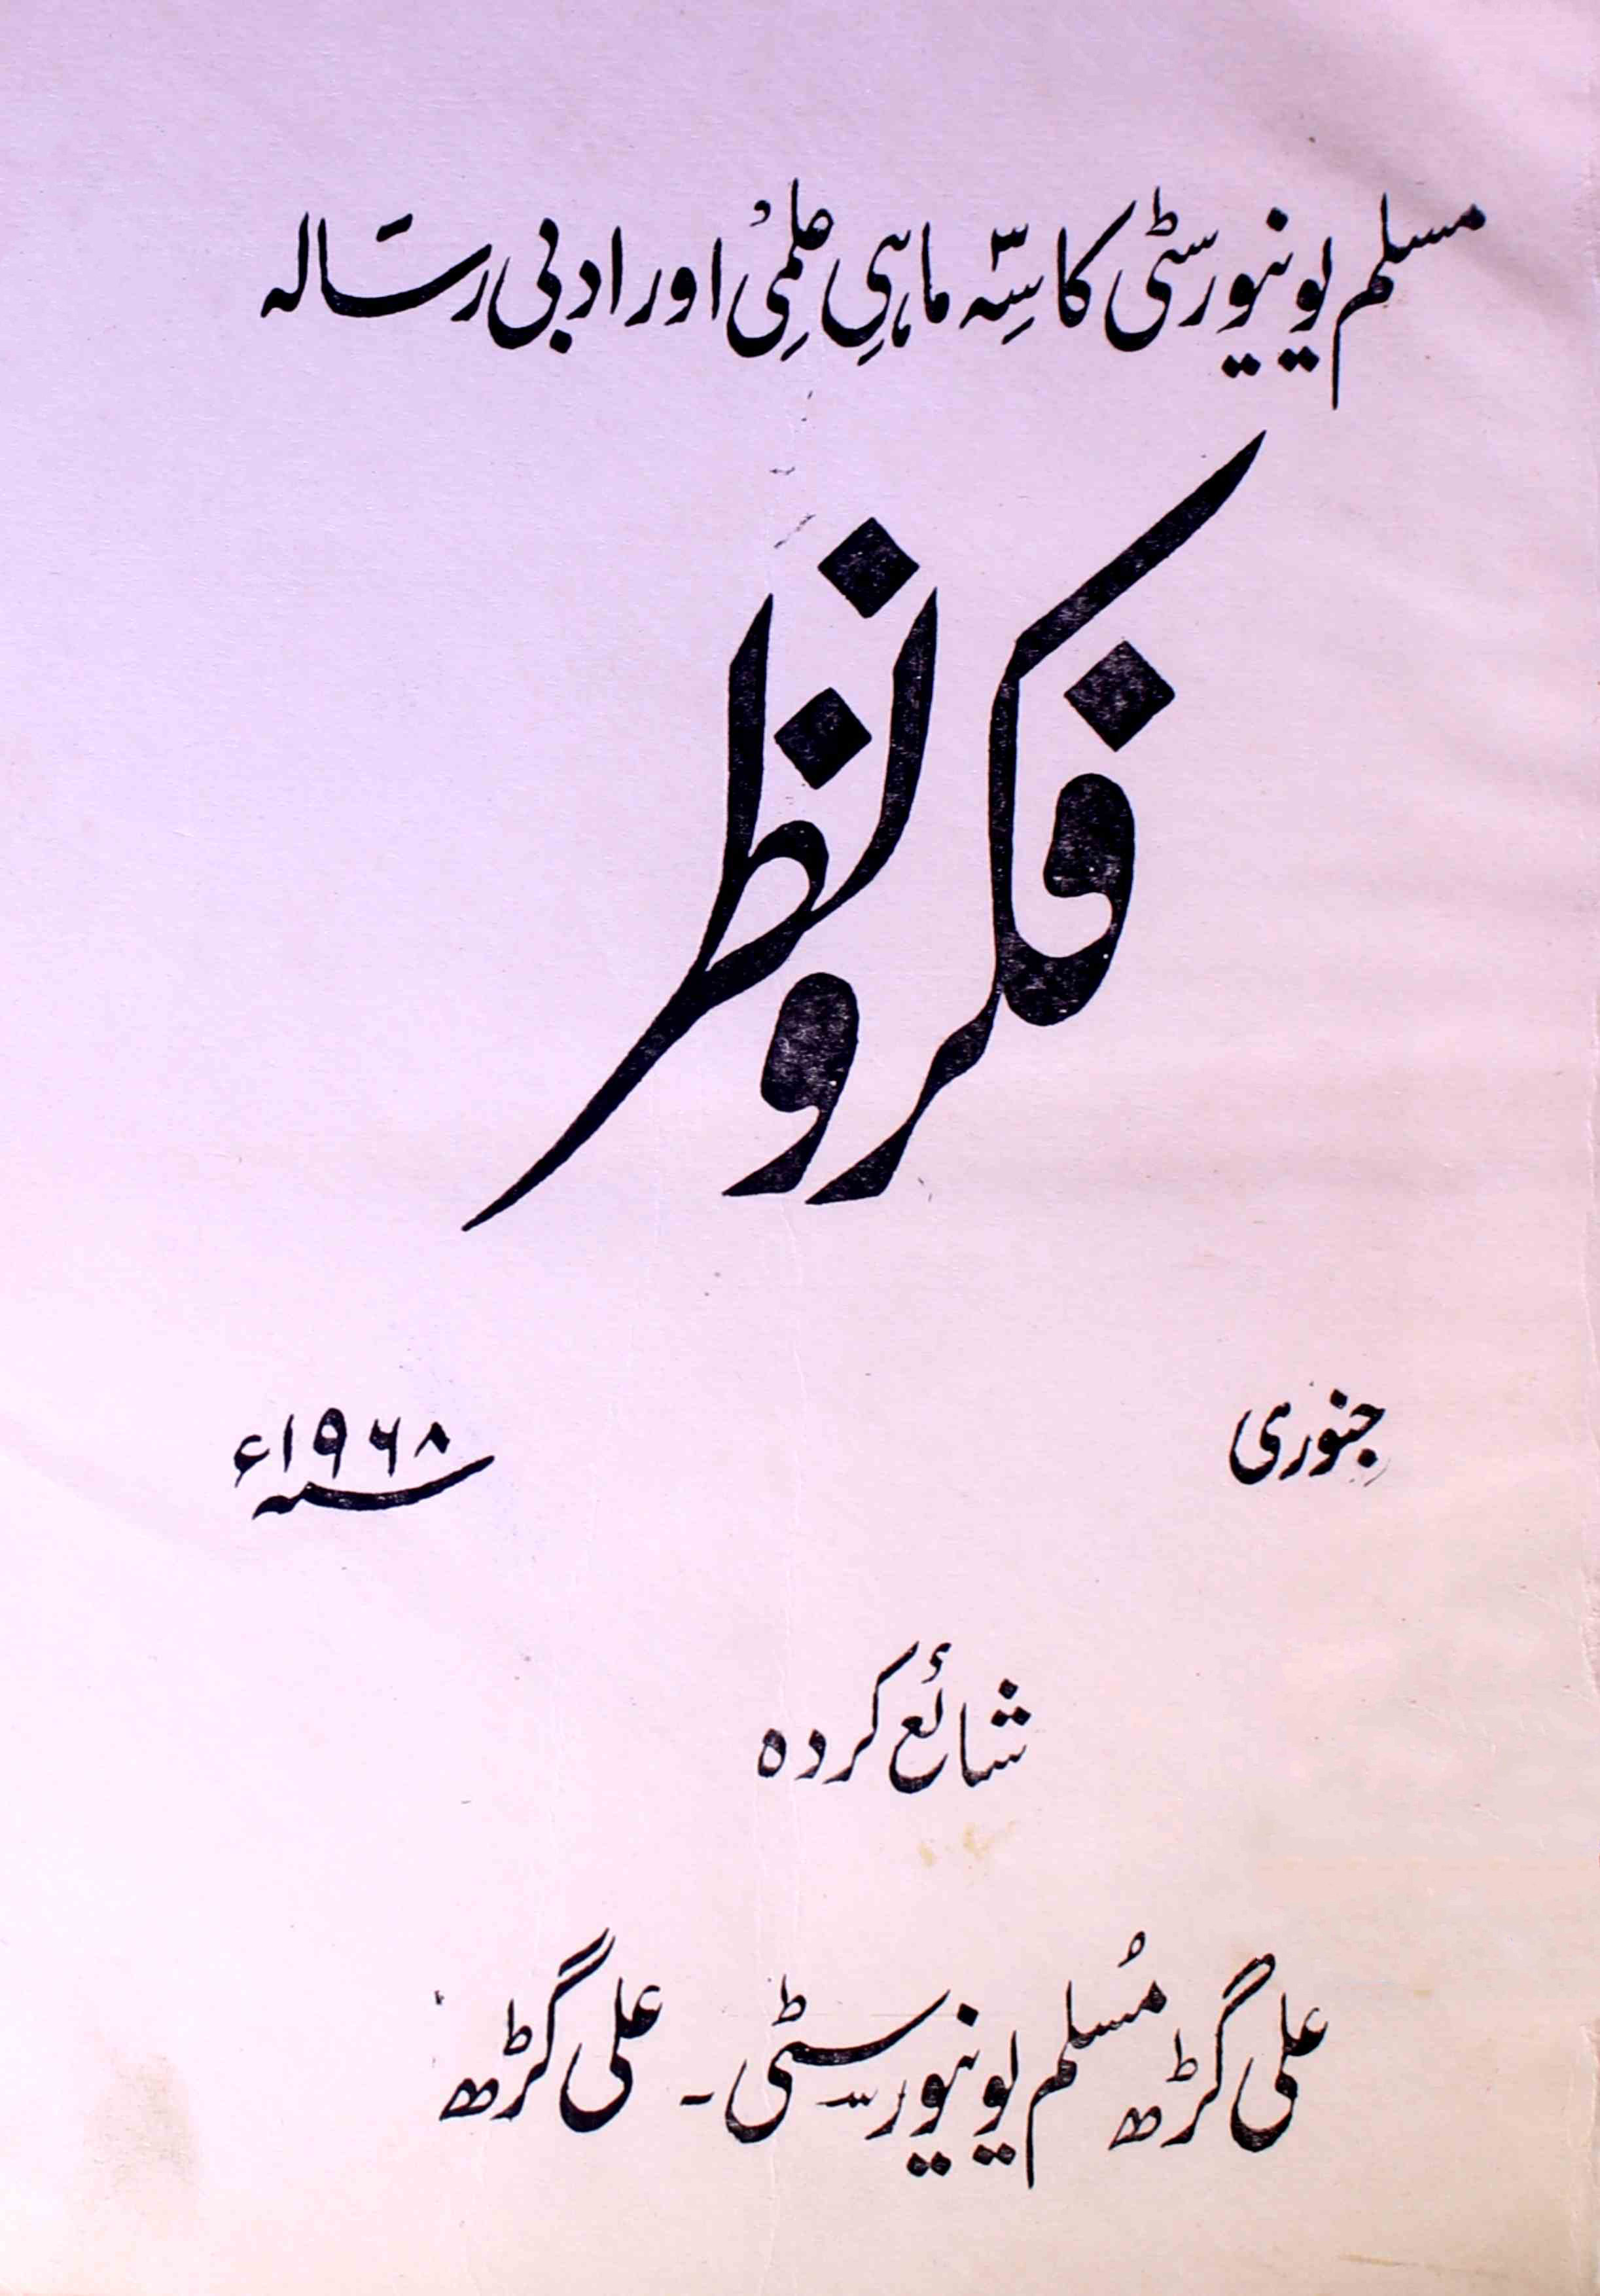 مسلم یونیورسٹی کا سہ ماہی علمی اور ادبی رسالہ
فکر و نظر
جنوری ۱۹۶۸ء
شائع کردہ
علی گڑھ مسلم یونیورسیٹی ۔ علی گڑھ